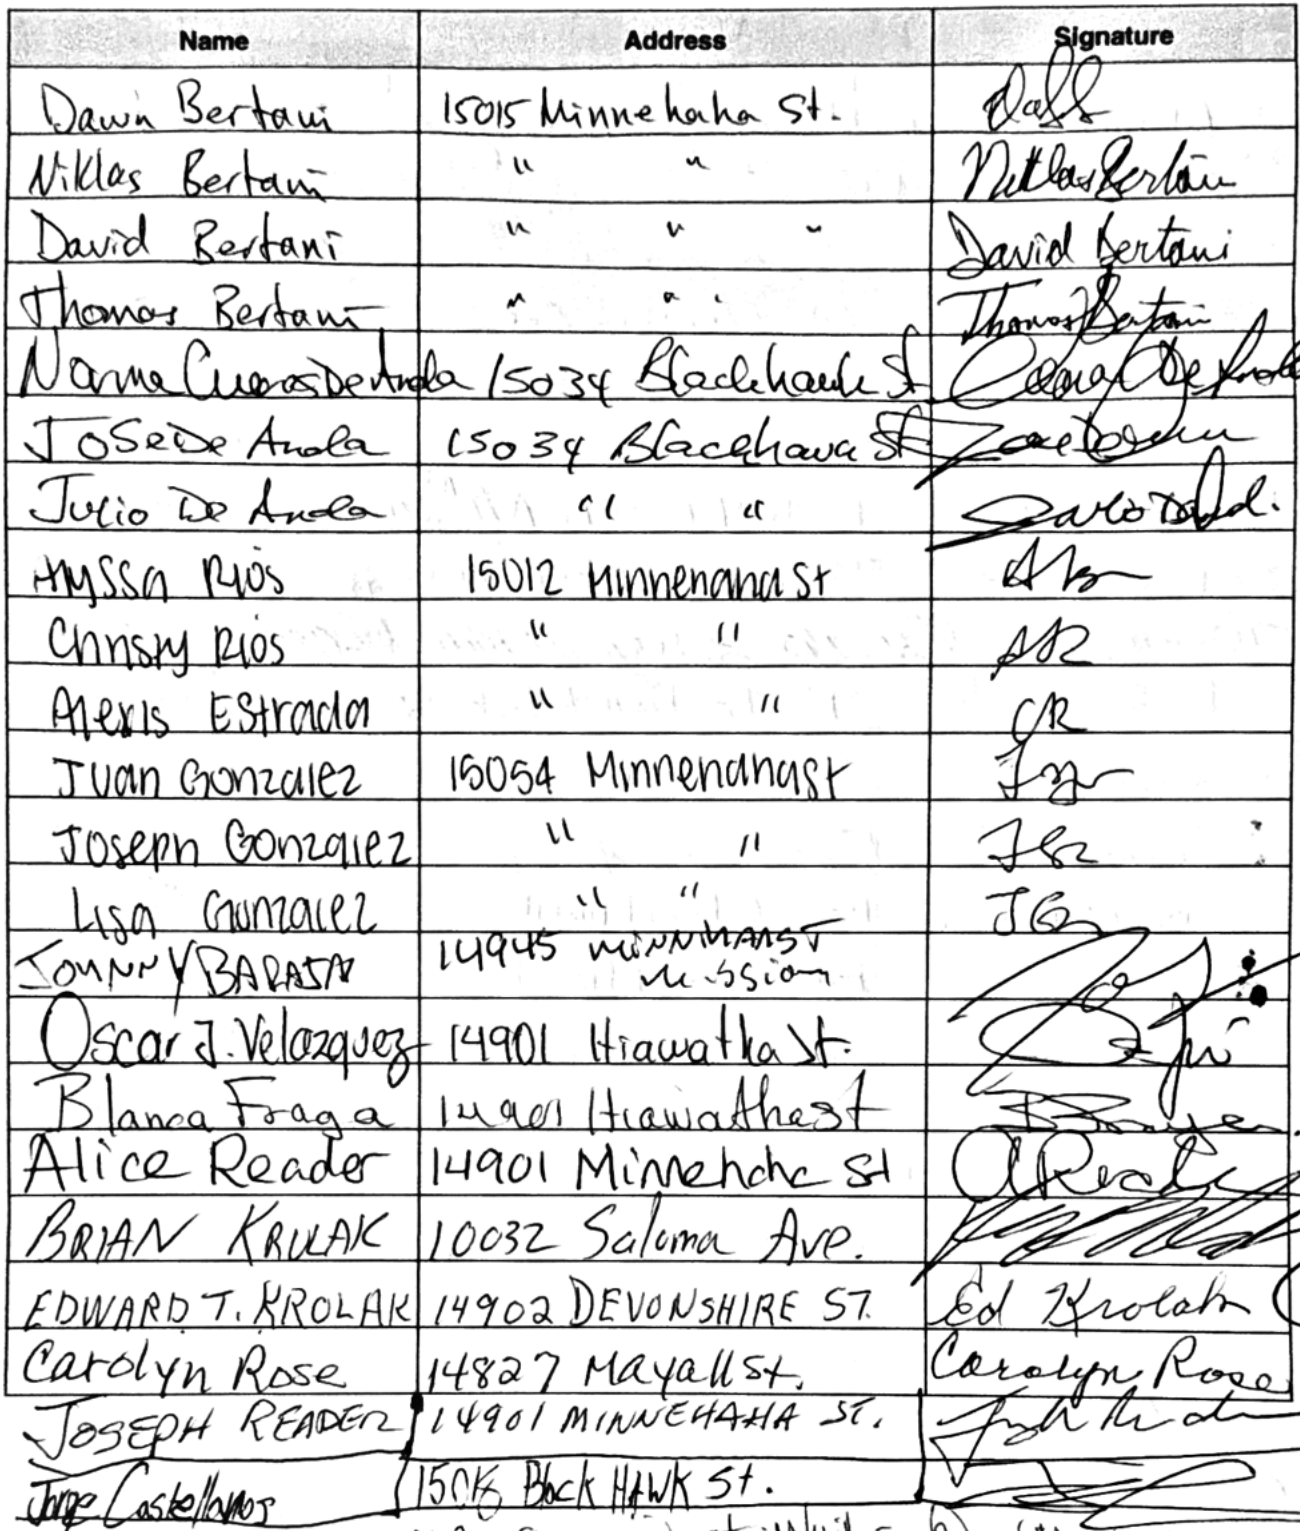 Name Address Signature
Dawn Bertani 15015 Minnehaha St.
Niklas Bertani " " Niklas Bertani
David Bertani " " " David Bertani
Thomas Bertani " " " Thomas Bertani
15034 Blackhawk St
Jose De Anda 15034 Blackhawk St
Julio De Anda " "
Alyssa Rios 15012 Minnehaha St
Christy Rios " " AR
Alexis Estrada " " CR
Juan Gonzalez 15054 Minnehaha St
Joseph Gonzalez " "
Lisa Gonzalez " "
JOHNNY 14945
Mission
Oscar J. Velazquez 14901 Hiawatha St.
Blanca Fraga 14901 Hiawatha St
Alice Reader 14901 Minnehaha St A Reader
BRIAN KRULAK 10032 Saloma Ave.
EDWARD T. KROLAK 14902 DEVONSHIRE ST. Ed Krolak
Carolyn Rose 14827 Mayall St. Carolyn Rose
JOSEPH READER 14901 MINNEHAHA ST.
Jorge Castellanos Black HAWK St.